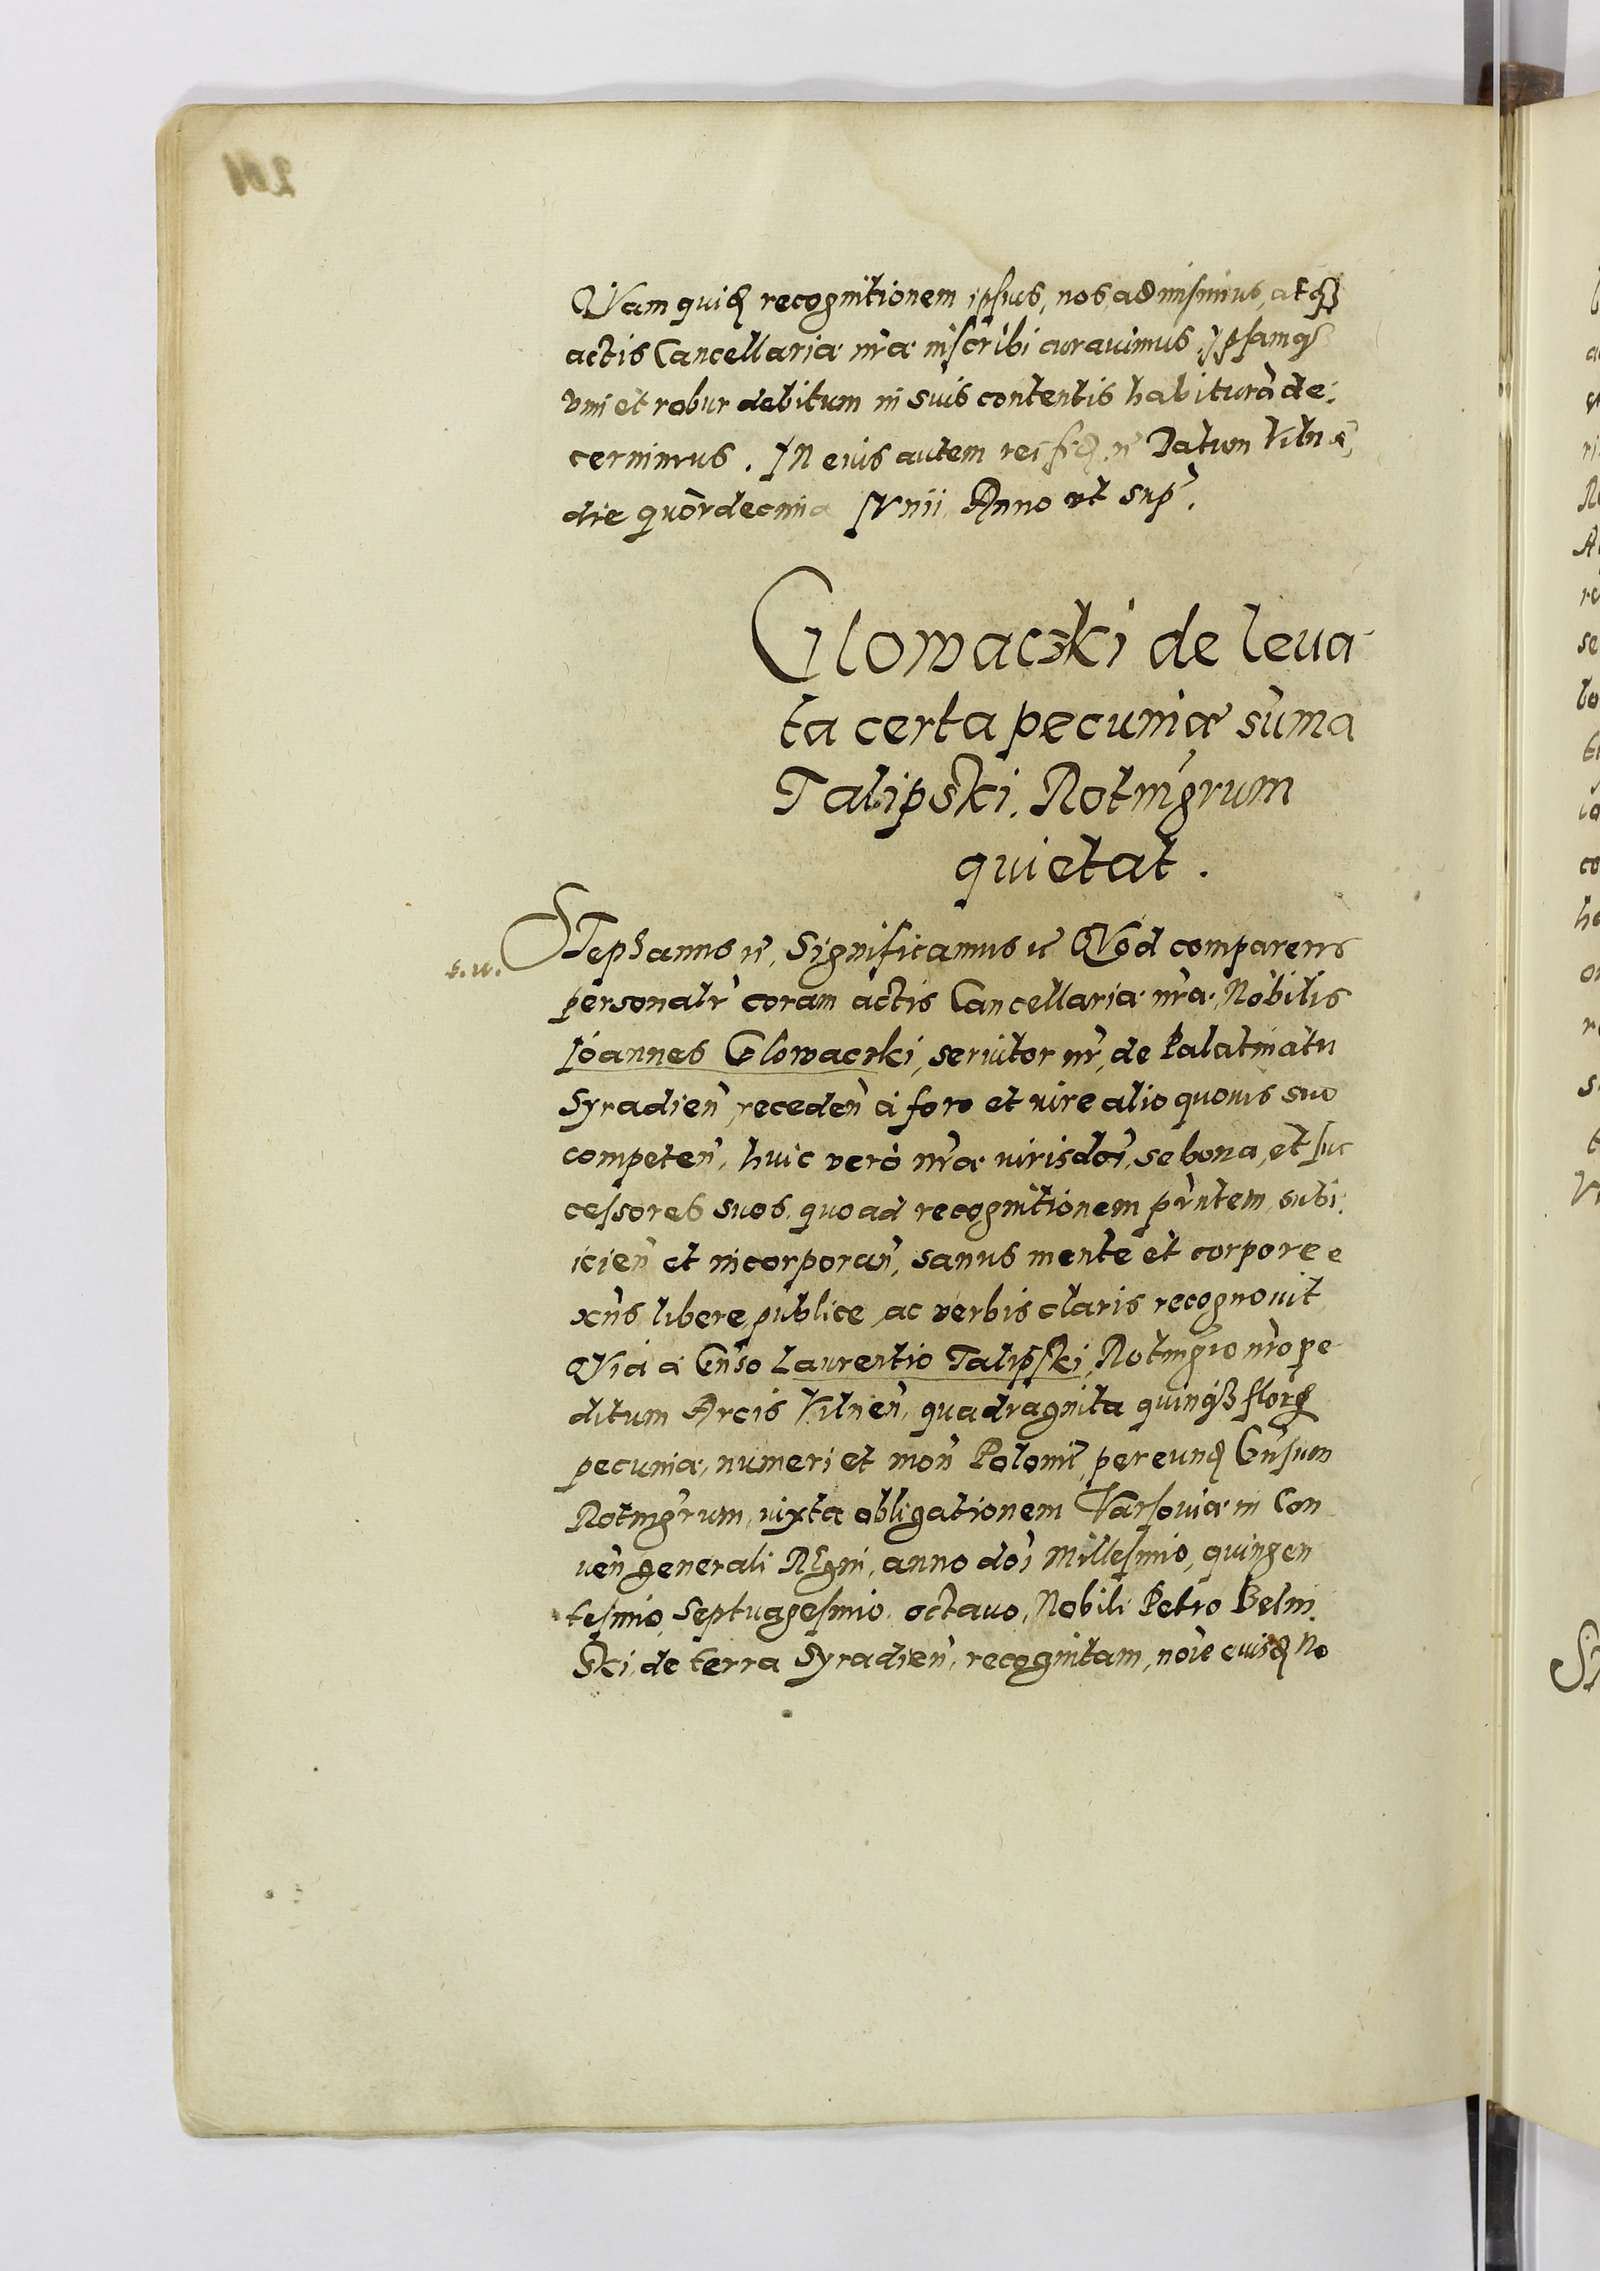 QVam quidē recognitionem ipsius, nos admisimus, atqȝ
actis Cancellariæ nr̄æ inscribi curauimus, ipsamqȝ
vim et robur debitum in suis contentis habiturā de,
cernimus. IN eius autem rei fidē. etc̄ Datum Vilnæ,
die quōrdecima IVnii, Anno vt sup̄.
Glowacski de leua
ta certa pecuniæ sum̄a
Talipski. Rotmgr̄um
quietat.
s. w.
STephanus etc̄, Significamus etc̄ QVod comparens
personalr̄ coram actis Cancellariæ nr̄æ, Nobilis
Ioannes Glowacski, seruitor nr̄, de Palatinatu
Syradien̄, receden̄ à foro et iure alio quouis suo
competen̄, huic verò nr̄æ iurisdoī, se bona, et suc
cessores suos quo ad recognitionem prn̄tem, subi,
icien̄ et incorporan̄, sanus mente et corpore e
xn̄s libere, publice, ac verbis claris recognouit
QVia à Gn̄so Laurentio Talipski, Rotmgr̄o nr̄o pe
ditum Arcis Vilnen̄, quadraginta quinqȝ flor̄
pecuniæ, numeri et mon̄ Polonil̄, per eundē Gn̄sum
Rotmgr̄um, iuxta obligationem Varsouiæ in Con
uen̄ generali REgni, anno doī Millesimo, quingen
tesimo, septuagesimo octauo, Nobili Petro Belin,
ski, de terra Syradien̄, recognitam, noīe eiusdē No